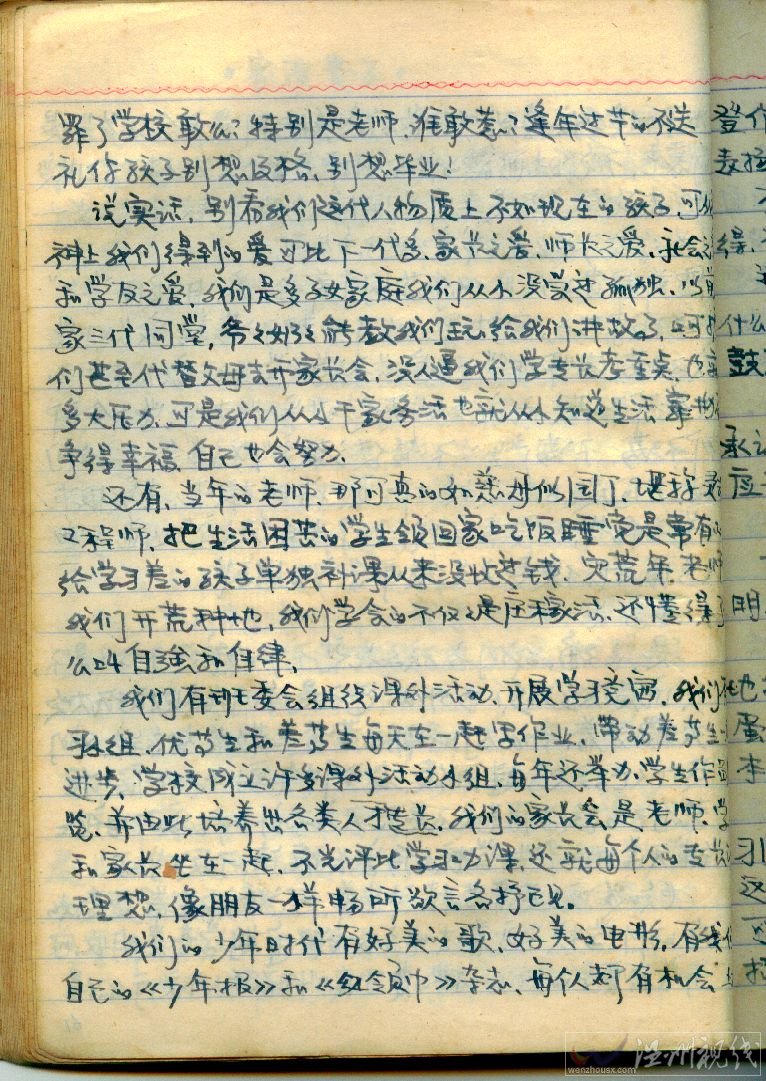 罪了学校敢么？特别是老师、谁敢惹？逢年过节的不送
礼你孩子别想及格、别想毕业！
说实话，别看我们这代人物质上不如现在的孩子，可
神上我们得到的爱可比下一代多、家长之爱、师长之爱、社会之
和学友之爱，我们是多子女家庭我们从小没受过孤独、以前
家三代同堂，爷爷奶奶能教我们玩给我们讲故事、
们甚至代替父母去开家长会，没人逼我们学专长考重点，也
多大压力、可是我们从小干家务活也就从小知道生活
争得幸福、自己也会努力。
还有、当年的老师、那可真的如慈母似园丁、堪称
工程师、把生活困苦的学生领回家吃饭睡觉是常有
给学习差的孩子单独补课从来没收过钱、灾荒年、老师
我们开荒种地，我们学会的不仅仅是庄稼活、还懂得了
么叫自强和自律、
我们有班委会组织课外活动、开展学习竞赛，我们
习小组、优等生和差等生每天在一起写作业、带动差等生
进步，学校成立许多课外活动小组、每年还举办学生作
览、并由此培养出各类人才专长、我们的家长会是老师、学
和家长坐在一起、不光评比学习功课、还就每个人的专长
理想、像朋友一样畅所欲言各抒己见。
我们的少年时代有好美的歌、好美的电影，有我们
自己的《少年报》和《红领巾》杂志、每个人都有机会
温州视线
wenzhousx.com